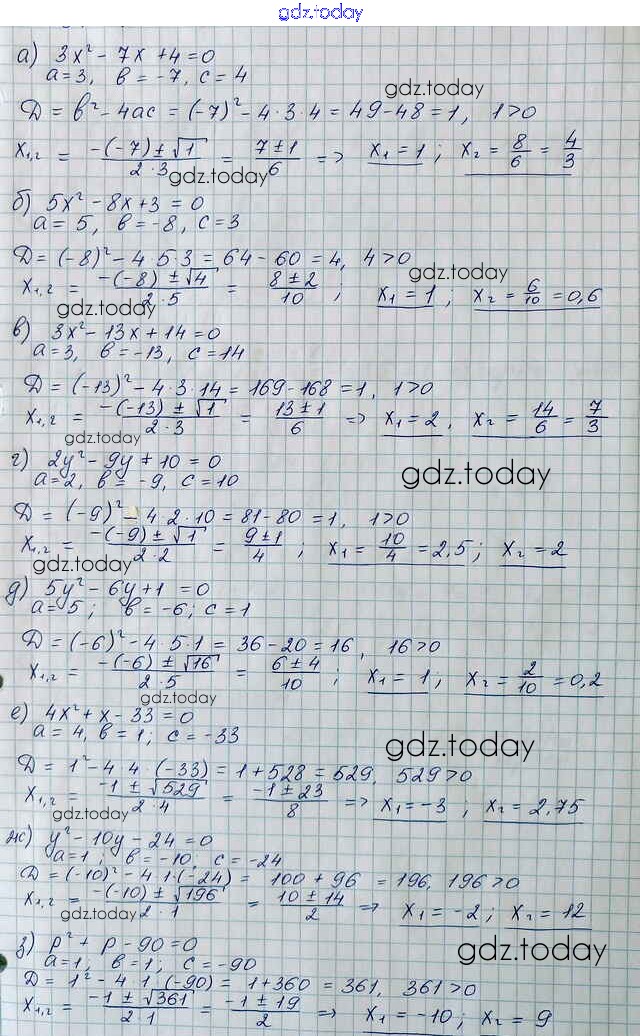 gdz.today
а) 3x² - 7x + 4 = 0
a = 3, b = -7, c = 4
gdz.today
D = b² - 4ac = (-7)² - 4·3·4 = 49 - 48 = 1, 1 > 0
x₁,₂ = (-(-7) ± √1)/(2·3) = (7 ± 1)/6 => x₁ = 1; x₂ = 8/6 = 4/3
gdz.today
б) 5x² - 8x + 3 = 0
a = 5, b = -8, c = 3
D = (-8)² - 4·5·3 = 64 - 60 = 4, 4 > 0
gdz.today
x₁,₂ = (-(-8) ± √4)/(2·5) = (8 ± 2)/10; x₁ = 1; x₂ = 6/10 = 0,6
gdz.today
в) 3x² - 13x + 14 = 0
a = 3, b = -13, c = 14
D = (-13)² - 4·3·14 = 169 - 168 = 1, 1 > 0
x₁,₂ = (-(-13) ± √1)/(2·3) = (13 ± 1)/6 => x₁ = 2, x₂ = 14/6 = 7/3
gdz.today
г) 2y² - 9y + 10 = 0
a = 2, b = -9, c = 10
gdz.today
D = (-9)² - 4·2·10 = 81 - 80 = 1, 1 > 0
x₁,₂ = (-(-9) ± √1)/(2·2) = (9 ± 1)/4; x₁ = 10/4 = 2,5; x₂ = 2
gdz.today
gdz.today
д) 5y² - 6y + 1 = 0
a = 5; b = -6; c = 1
D = (-6)² - 4·5·1 = 36 - 20 = 16, 16 > 0
x₁,₂ = (-(-6) ± √16)/(2·5) = (6 ± 4)/10; x₁ = 1; x₂ = 2/10 = 0,2
gdz.today
е) 4x² + x - 33 = 0
a = 4, b = 1; c = -33
gdz.today
D = 1² - 4·4·(-33) = 1 + 528 = 529, 529 > 0
x₁,₂ = (-1 ± √529)/(2·4) = (-1 ± 23)/8 => x₁ = -3; x₂ = 2,75
gdz.today
ж) y² - 10y - 24 = 0
a = 1; b = -10, c = -24
gdz.today
D = (-10)² - 4·1·(-24) = 100 + 96 = 196, 196 > 0
x₁,₂ = (-(-10) ± √196)/(2·1) = (10 ± 14)/2 => x₁ = -2; x₂ = 12
gdz.today
з) p² + p - 90 = 0
a = 1; b = 1; c = -90
gdz.today
D = 1² - 4·1·(-90) = 1 + 360 = 361, 361 > 0
x₁,₂ = (-1 ± √361)/(2·1) = (-1 ± 19)/2 => x₁ = -10; x₂ = 9